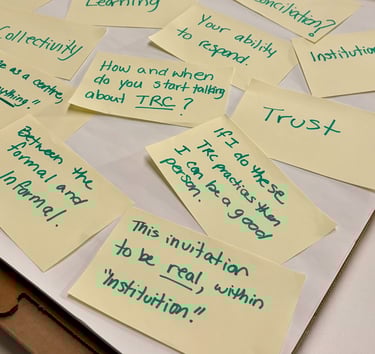 Learning
conciliation?
Your ability
to respond.
Collectivity
Institution
How and when
do you start talking
about TRC?
e as a centre,
ything"
Trust
Between the
formal and
Informal.
If I do these
TRC practices then
I can be a good
person.
This invitation
to be real, within
"Instituition."